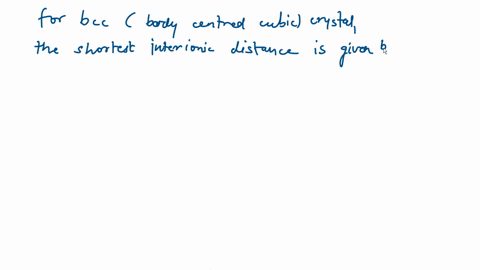 for bcc ( body centred cubic) crystal,
the shortest interionic distance is given b